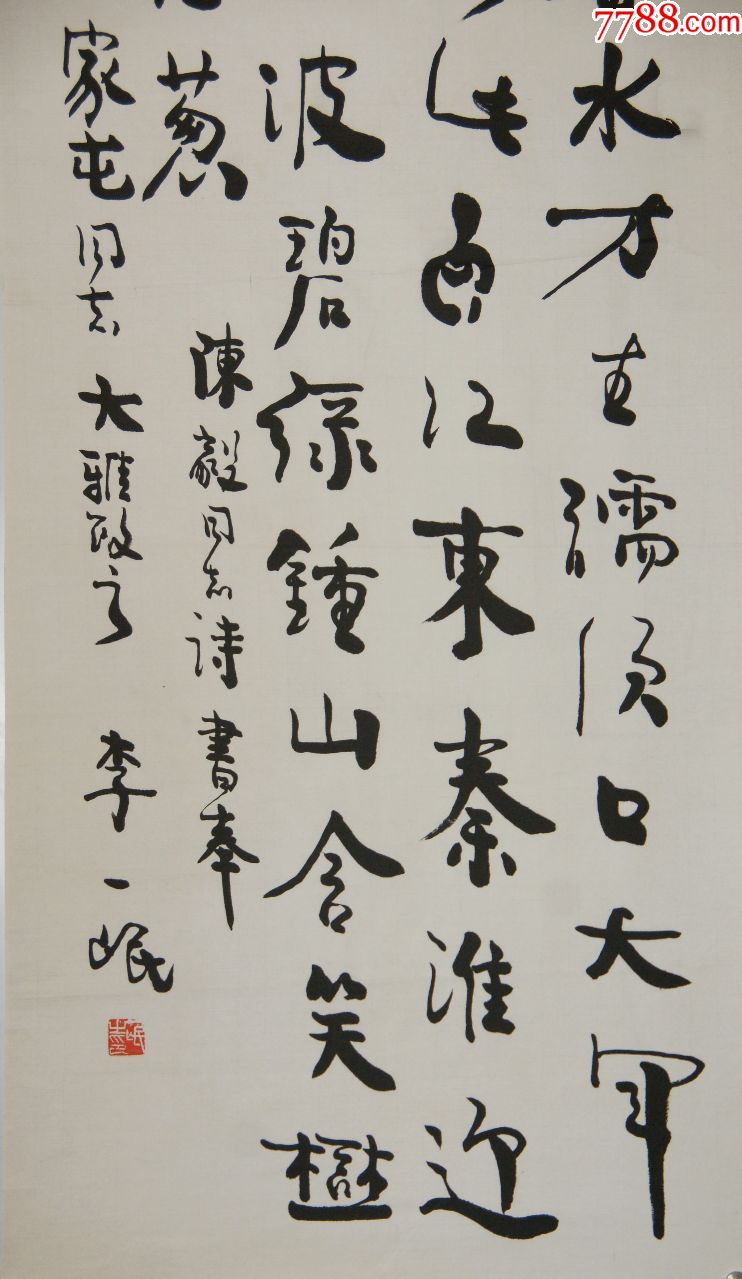 7788.com
水方生濡须口大军
此直江東秦淮迎
波碧绿鍾山含笑樾
葱
陳毅同志诗書奉
家屯同志大雅政之
李一氓